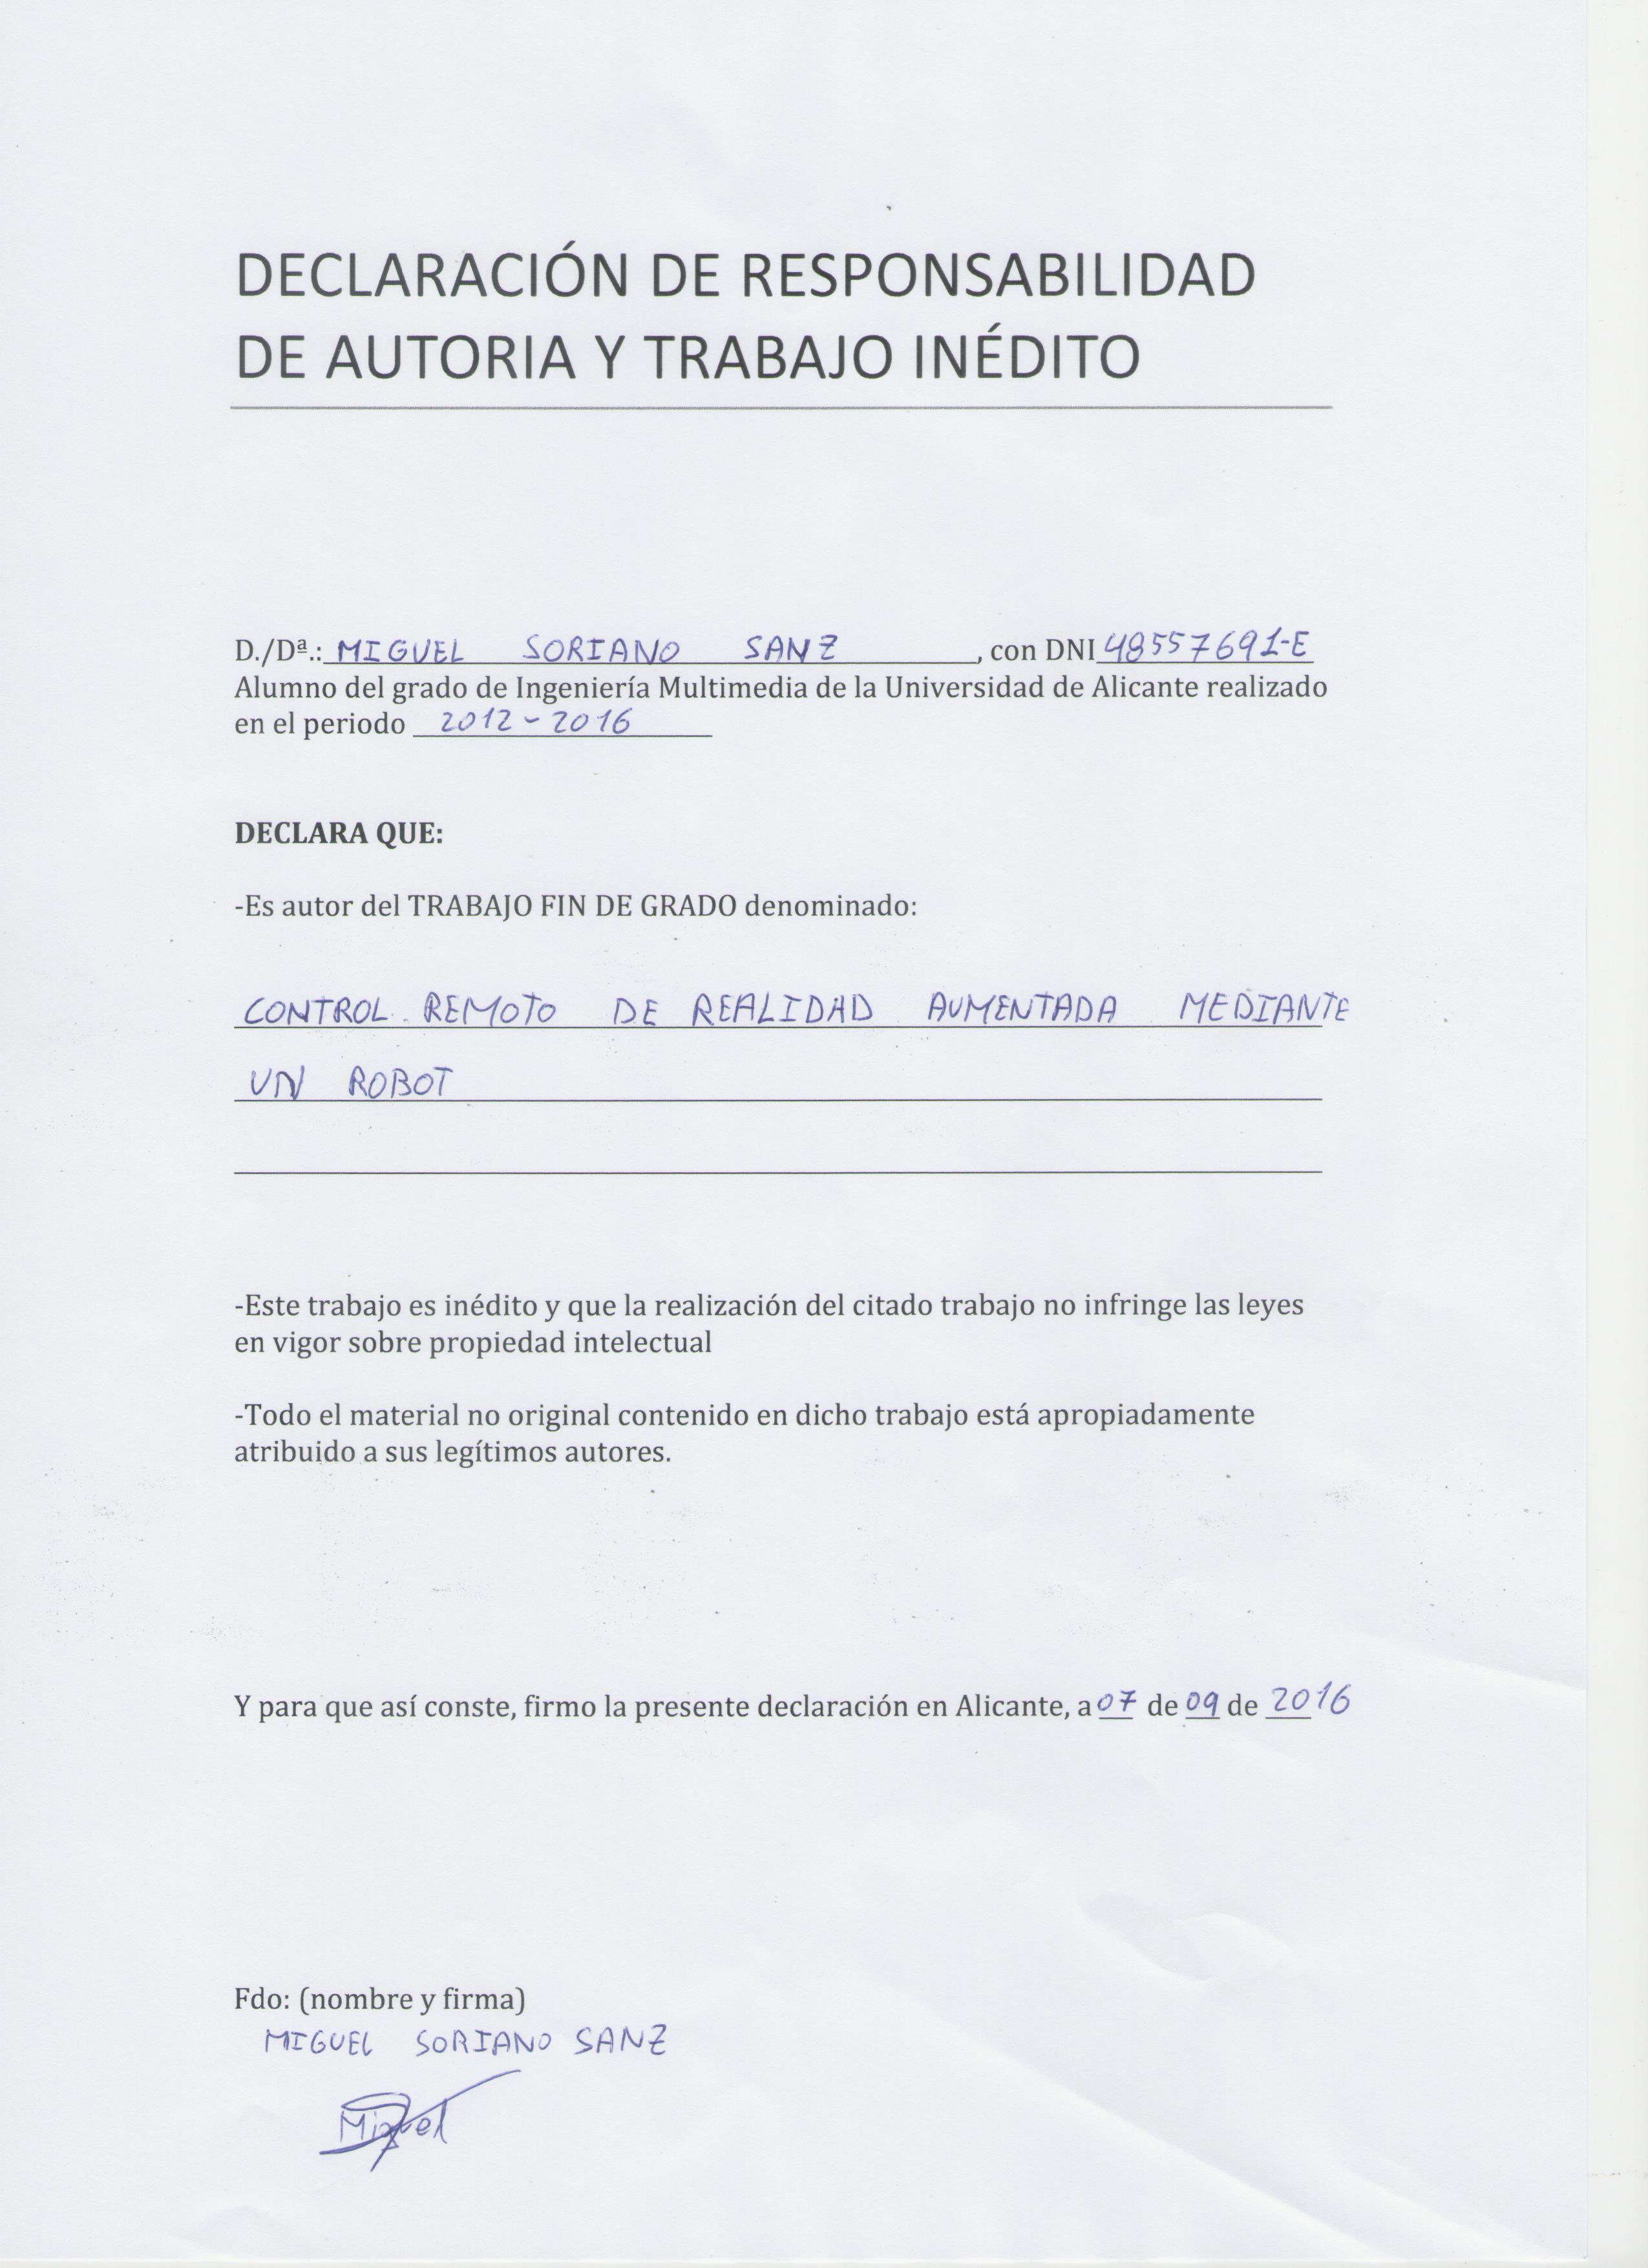 DECLARACIÓN DE RESPONSABILIDAD
DE AUTORIA Y TRABAJO INÉDITO
D./Dª.: MIGUEL SORIANO SANZ, con DNI 48557691-E
Alumno del grado de Ingeniería Multimedia de la Universidad de Alicante realizado
en el periodo 2012-2016
DECLARA QUE:
-Es autor del TRABAJO FIN DE GRADO denominado:
CONTROL REMOTO DE REALIDAD AUMENTADA MEDIANTE
UN ROBOT
-Este trabajo es inédito y que la realización del citado trabajo no infringe las leyes
en vigor sobre propiedad intelectual
-Todo el material no original contenido en dicho trabajo está apropiadamente
atribuido a sus legítimos autores.
Y para que así conste, firmo la presente declaración en Alicante, a 07 de 09 de 2016
Fdo: (nombre y firma)
MIGUEL SORIANO SANZ
Miguel